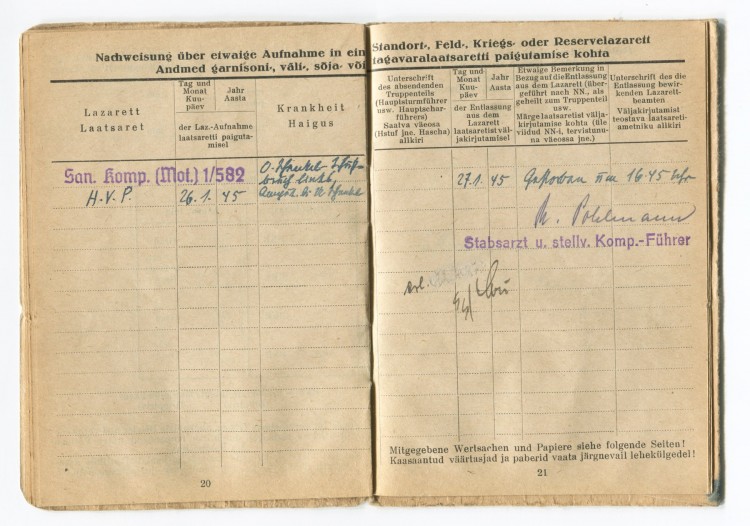 Nachweisung über etwaige Aufnahme in ein
Andmed garnisoni-, väli-, sõja- või
Lazarett
Laatsaret
Tag und
Monat
Kuu-
päev
Jahr
Aasta
der Laz.-Aufnahme
laatsaretti paiguta-
misel
Krankheit
Haigus
San. Komp. (Mot.) 1/582
H.V.P.
26.1.
45
O.
links,
20
Standort-, Feld-, Kriegs- oder Reservelazarett
tagavaralaatsaretti paigutamise kohta
Unterschrift
des absendenden
Truppenteils
(Hauptsturmführer
usw. Hauptschar-
führers)
Saatva väeosa
(Hstuf jne. Hascha)
allkiri
Tag und
Monat
Kuu-
päev
Jahr
Aasta
der Entlassung
aus dem
Lazarett
laatsaretist väl-
jakirjutamisel
Etwaige Bemerkung in
Bezug auf die Entlassung
aus dem Lazarett (über-
geführt nach NN., als
geheilt zum Truppenteil
usw.
Märge laatsaretist välja-
kirjutamise kohta (üle
viidud NN-i, tervistunu-
na väeossa jne.)
Unterschrift des die
Entlassung bewir-
kenden Lazarett-
beamten
Väljakirjutamist
teostava laatsareti-
ametniku allkiri
27.1.
45
Gestorben um 16.45 Uhr
Pohlmann
Stabsarzt u. stellv. Komp.-Führer
erl.
Mitgegebene Wertsachen und Papiere siehe folgende Seiten!
Kaasaantud väärtasjad ja paberid vaata järgnevail lehekülgedel!
21